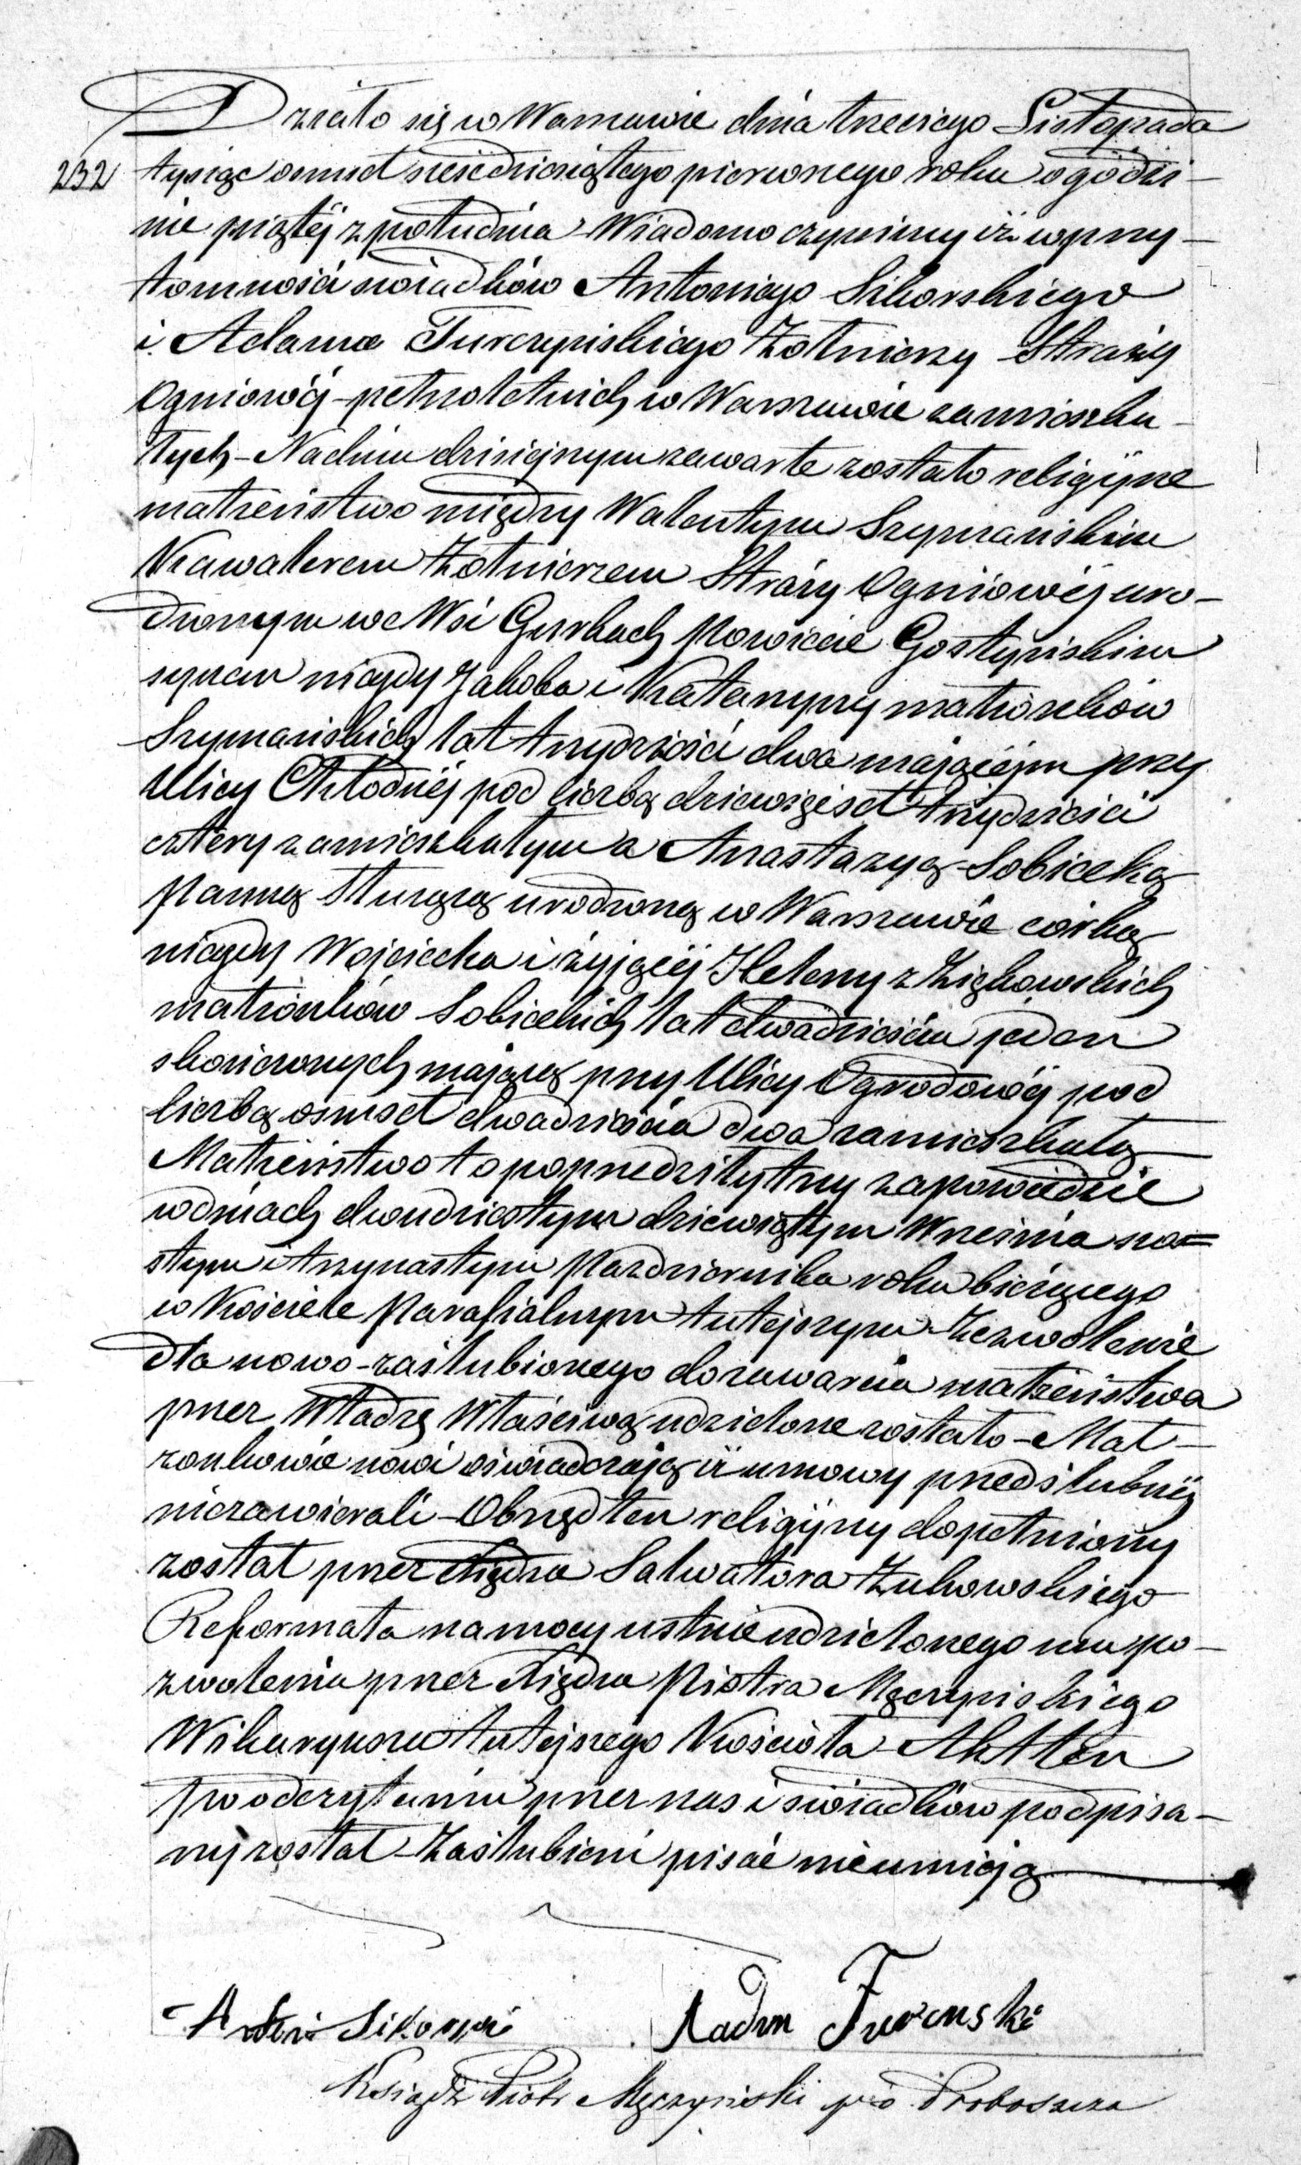 Działo się w Warszawie dnia trzeciego Listopada
232 tysiąc ośmset sześćdziesiątego pierwszego roku o godzi-
nie piątéj z południa Wiadomo czyniemy iż w przy-
tomności świadków Antoniego Sikorskiego
i Adama Turczyńskiego Żołnierzy Straży
Ogniowéj - pełnoletnich w Warszawie zamieszka-
łych - Na dniu dzisiejszym zawarte zostało religijne
małżeństwo między Walentym Szymańskim
Kawalerem Żołnierzem Straży Ogniowéj uro-
dzonym we Wsi Gurbach Powiecie Gostyńskim
synem niegdy Jakóba i Katarzyny małżonków
Szymańskich lat trzydzieści dwa mającym przy
Ulicy Chłodnéj pod liczbą dziewięćset trzydzieści
cztery zamieszkałym a Anastazyą Sobiecką
Panną służącą urodzoną w Warszawie córką
niegdy Wojciecha i żyjącéj Heleny z Ziękowskich
małżonków Sobieckich lat dwadzieścia jeden
skończonych mającą przy Ulicy Ogrodowéj pod
liczbą ośmset dwadzieścia dwa zamieszkałą
Małżeństwo to poprzedziły trzy zapowiedzie
w dniach dwudziestym dziewiątym Września szó=
stym i trzynastym Października roku bieżącego
w Kościele Parafialnym tutejszym Zezwolenie
dla nowo-zaślubionego do zawarcia małżeństwa
przez Władzę Właściwą udzielone zostało - Mał-
żonkowie nowi oświadczają iż umowy przedślubnéj
niezawierali - Obrzęd ten religijny dopełniony
został przez Xiędza Salwatora Żukowskiego
Reformata na mocy ustnie udzielonego mu po-
zwolenia przez Xiędza Piotra Męczyńskiego
Wikaryusza tutejszego Kościoła - Akt ten
po odczytaniu przez nas i świadków podpisa-
ny został - Zaślubieni pisać nieumieją
Antoni Sikorski Aadm Turcnski
Ksiądz Piotr Męczyński p.o. Proboszcza